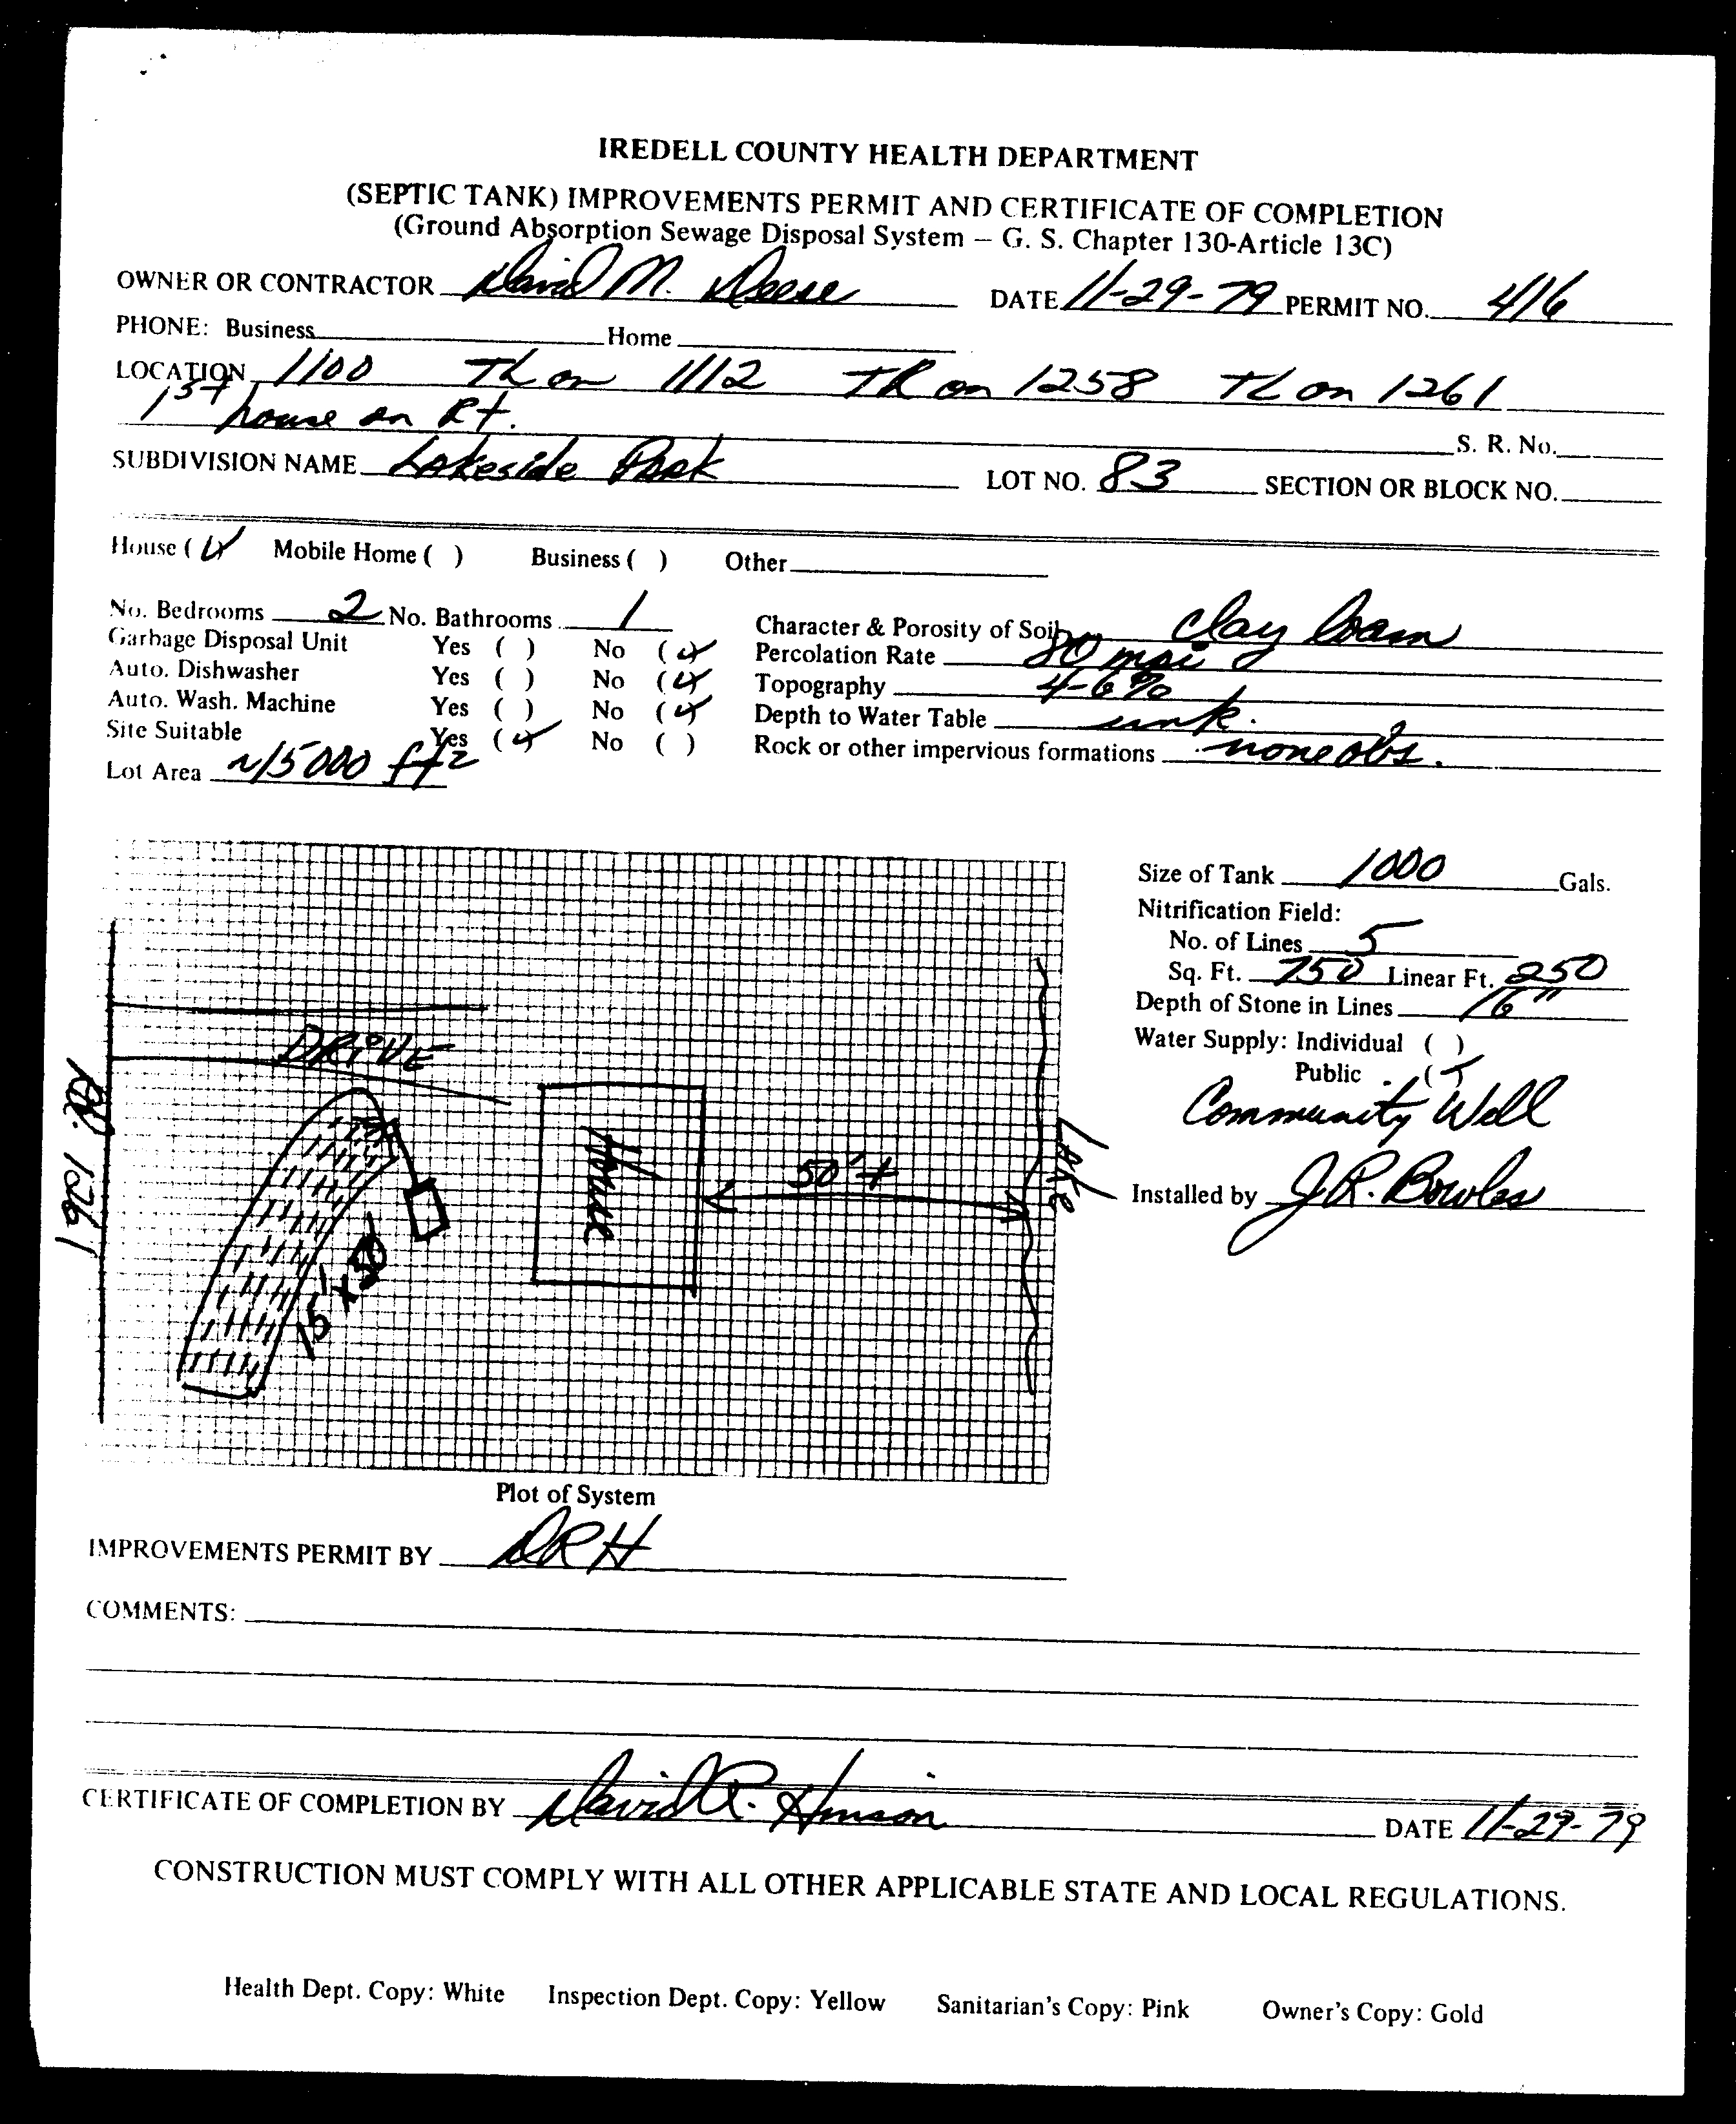 IREDELL COUNTY HEALTH DEPARTMENT
(SEPTIC TANK) IMPROVEMENTS PERMIT AND CERTIFICATE OF COMPLETION
(Ground Absorption Sewage Disposal System – G. S. Chapter 130-Article 13C)
OWNER OR CONTRACTOR David M. Deese DATE 11-29-79 PERMIT NO. 416
PHONE: Business Home
LOCATION 1100 TL on 1112 TR on 1258 TL on 1261
1st house on Rt. S. R. No.
SUBDIVISION NAME Lakeside Park LOT NO. 83 SECTION OR BLOCK NO.
House (✓) Mobile Home ( ) Business ( ) Other
No. Bedrooms 2 No. Bathrooms 1 Character & Porosity of Soil clay loam
Garbage Disposal Unit Yes ( ) No (✓) Percolation Rate 80 mpi
Auto. Dishwasher Yes ( ) No (✓) Topography 4-6%
Auto. Wash. Machine Yes ( ) No (✓) Depth to Water Table unk.
Site Suitable Yes (✓) No ( ) Rock or other impervious formations none obs.
Lot Area ~15000 ft2
Size of Tank 1000 Gals.
Nitrification Field:
No. of Lines 5
Sq. Ft. 750 Linear Ft. 250
Depth of Stone in Lines 16"
Water Supply: Individual ( )
Public (✓)
Community Well
Installed by J.R. Bowles
DRIVE
Rd. 1261
House
50'+
Lake
15' x 50'
Plot of System
IMPROVEMENTS PERMIT BY DRH
COMMENTS:
CERTIFICATE OF COMPLETION BY David R. Hinson DATE 11-29-79
CONSTRUCTION MUST COMPLY WITH ALL OTHER APPLICABLE STATE AND LOCAL REGULATIONS.
Health Dept. Copy: White Inspection Dept. Copy: Yellow Sanitarian's Copy: Pink Owner's Copy: Gold